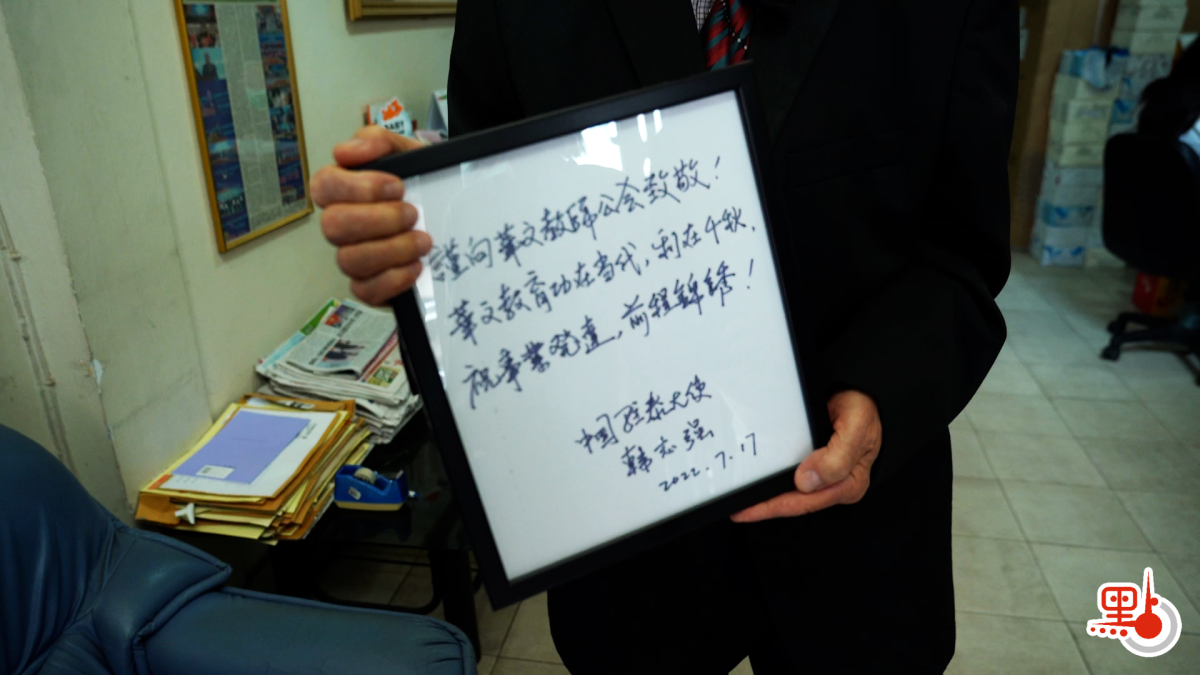 謹向華文教師公会致敬！
華文教育功在当代，利在千秋，
祝事業兴旺，前程錦綉！
中国驻泰大使
韩志强
2022.7.17
里